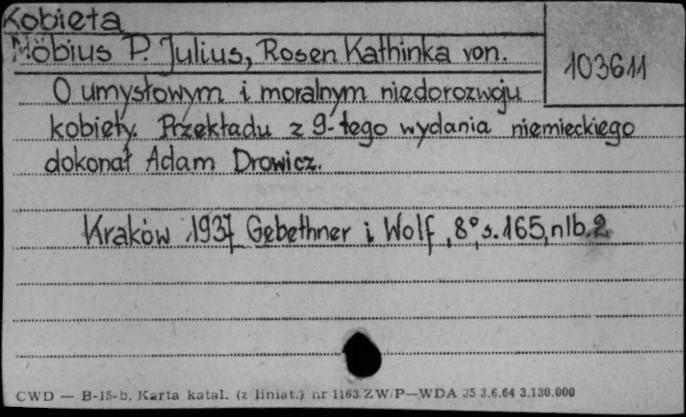 Kobieta
Möbius P. Julius, Rosen Kathinka von.
103611
O umysłowym i moralnym niedorozwoju
kobiety. Przekładu z 9-tego wydania niemieckiego
dokonał Adam Drowicz.
Kraków 1937 Gebethner i Wolf, 8°, s. 165, nlb. 2
CWD — B-15-b, Karta katal. (z liniat.) nr 1163 ZW/P—WDA 35 3.6.64 3.130.000